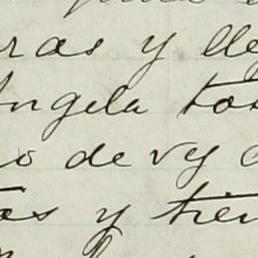 ras y lle
Angela tos
o de vy
os y tien